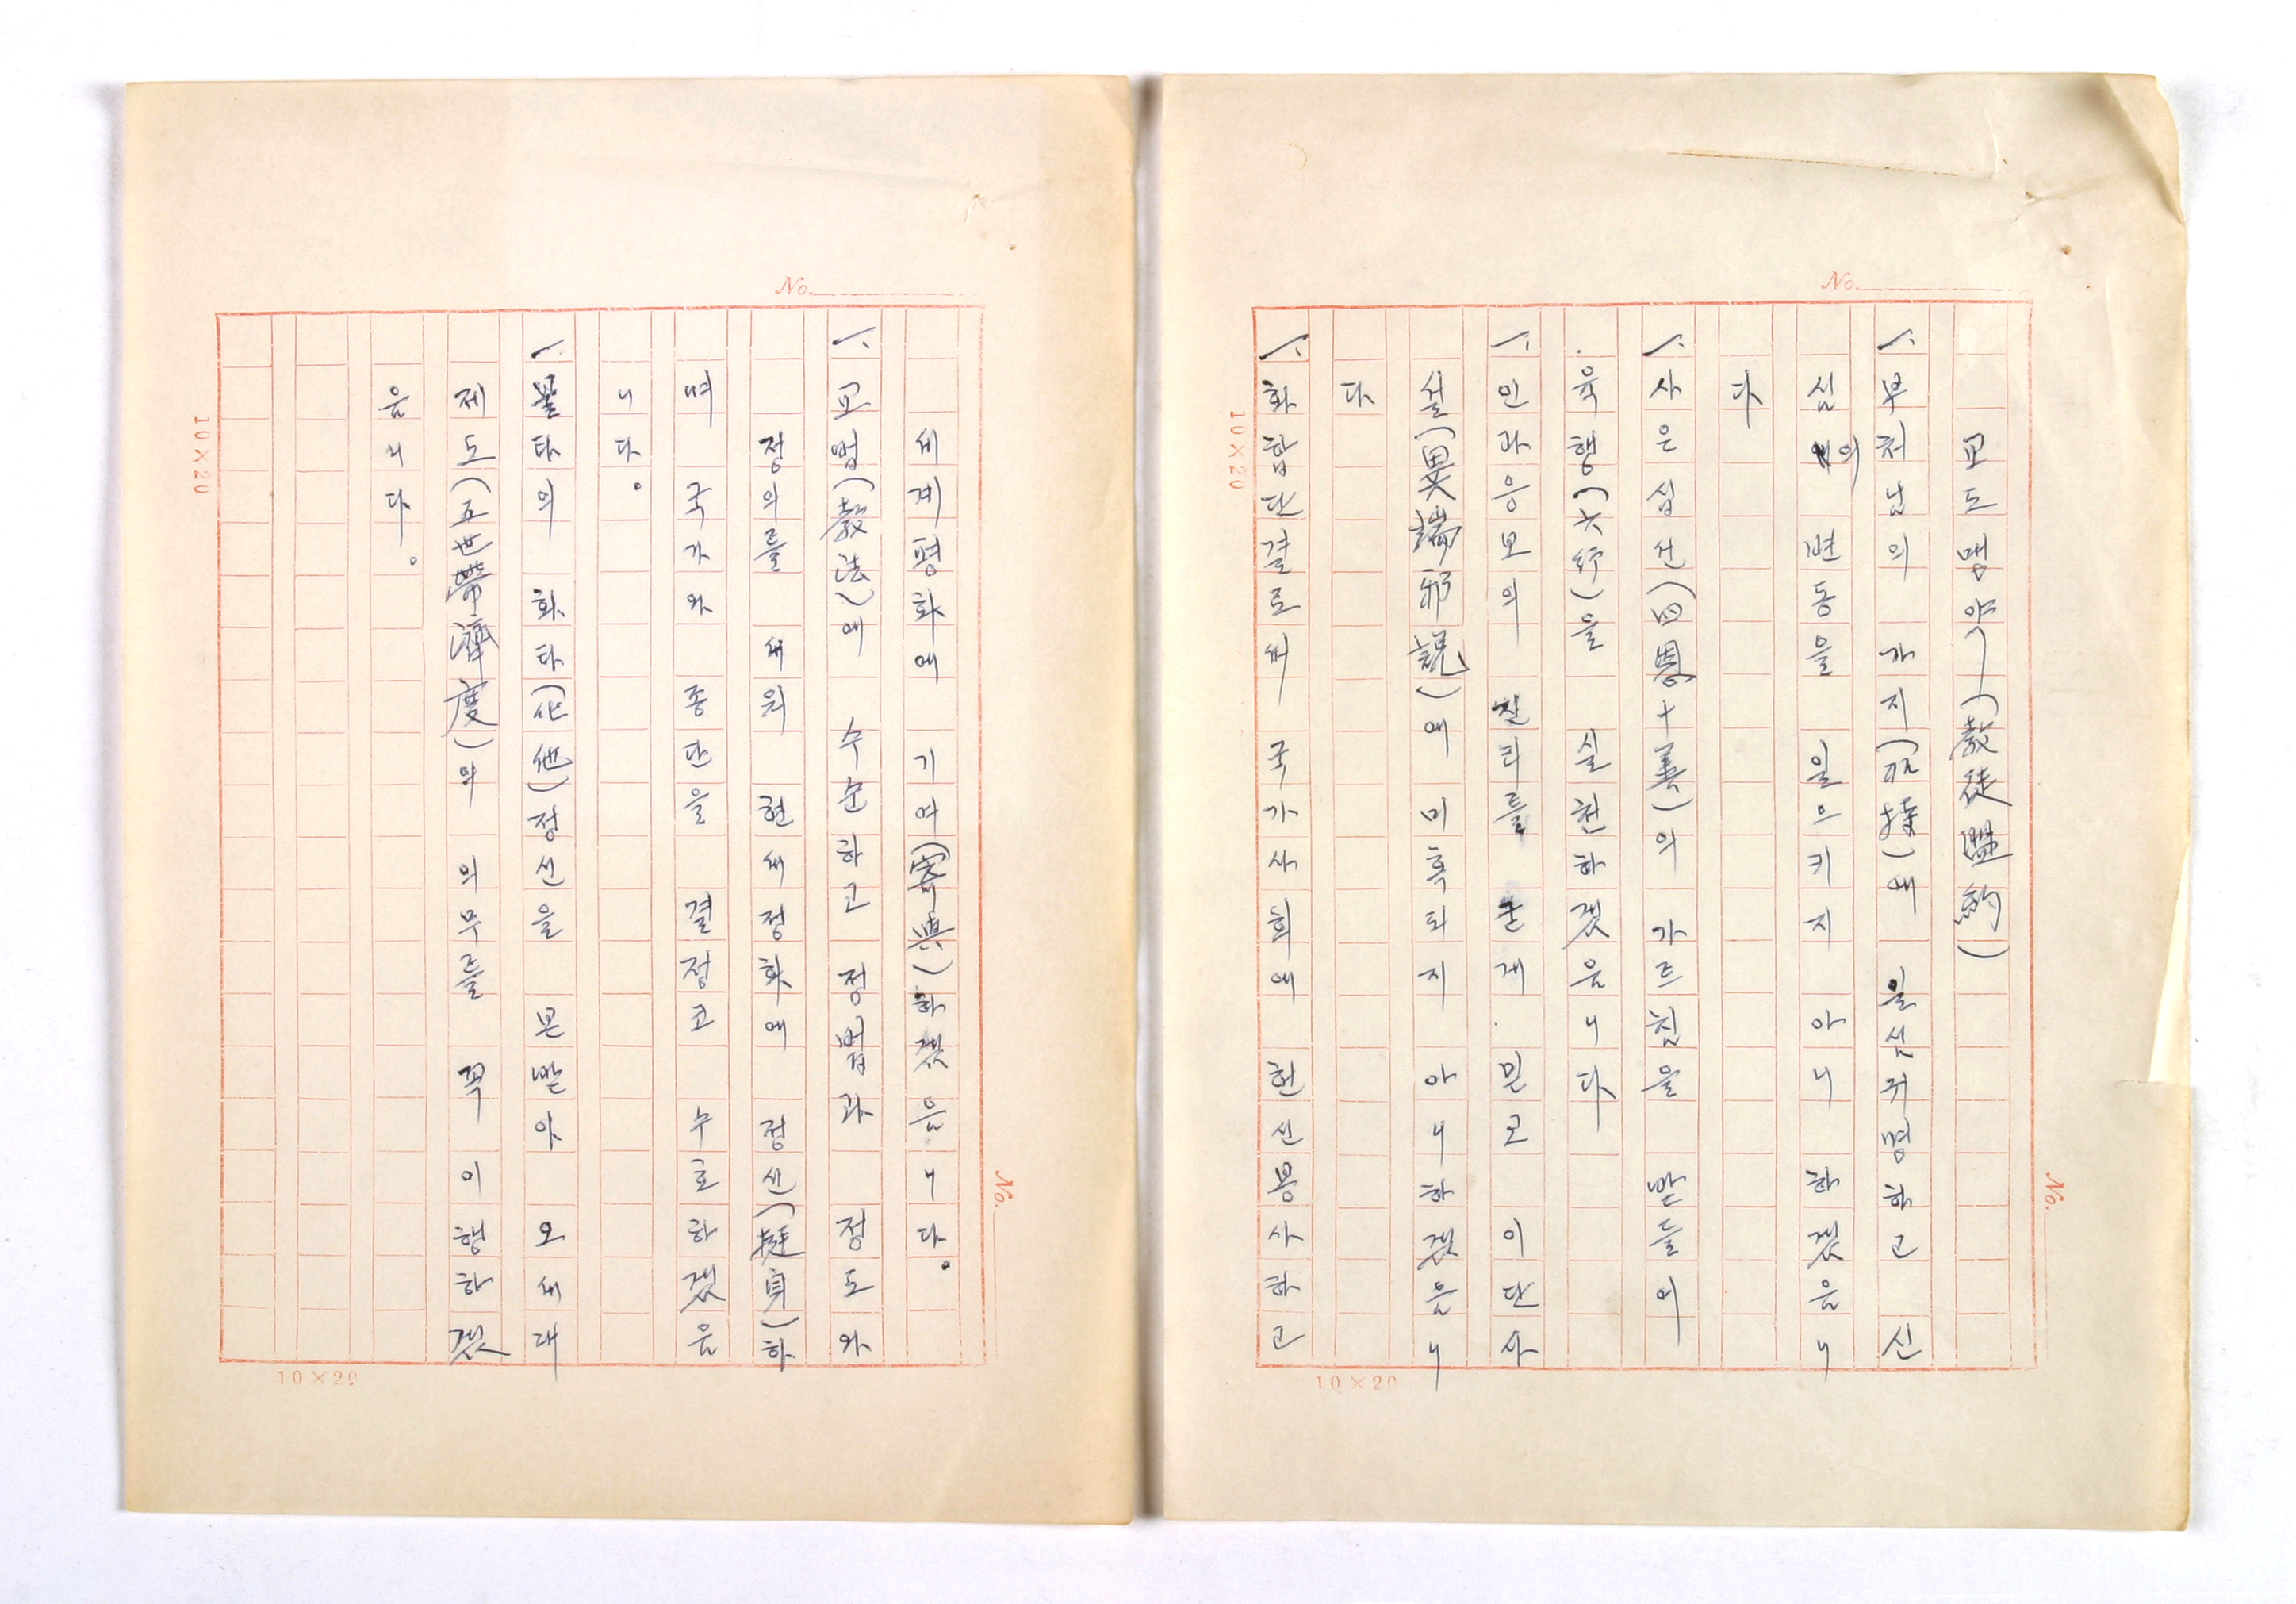 교도맹약)―)敎徒盟約(
1. 부천난의 가지)加持(에 일심귀명하고 신
심의 변동을 일으키지 아니 하겠음니
다
1. 사은십선)四恩十善(의 가르침을 받들의
육행)六行(을 실천하겠음니다
1. 인과응보의 진리를 굳게 믿고 이단사
설)異端邪說(에 미혹되지 아니하겠음니
다
1. 화합단결로써 국가사회에 헌신봉사하고
세계평화에 기여)寄與(하겠음니다。
1. 교법)敎法(에 수순하고 정법과 정도와
정의를 세워 현세정화에 정신)挺身(하
며 국가와 종단을 결정코 수호하겠음
니다。
1. 불타의 화타)化他(정신을 본받아 오세대
제도)五世帶濟度(의 의무를 꼭 이행하겠
음니다。
No.
No.
10×20
10×20
No.
No.
10×20
10×20